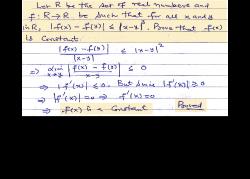 Let R be the set of real numbers and
f: R→R be such that for all x and y
in R, |f(x) - f(y)| ≤ |x-y|³. Prove that f(x)
is constant.
|f(x) - f(y)| / |x-y| ≤ |x-y|²
⇒ lim x→y |f(x) - f(y) / x-y| ≤ 0
⇒ |f'(x)| ≤ 0. But since |f'(x)| ≥ 0
⇒ |f'(x)| = 0 ⇒ f'(x) = 0
⇒ f(x) is a constant Proved